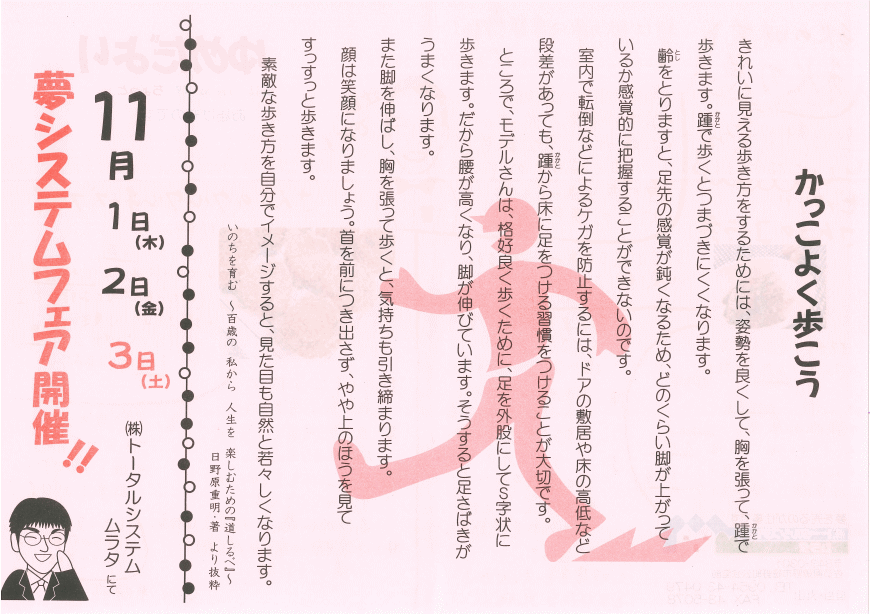 かっこよく歩こう
きれいに見える歩き方をするためには、姿勢を良くして、胸を張って、踵で
歩きます。踵で歩くとつまづきにくくなります。
齢をとりますと、足先の感覚が鈍くなるため、どのくらい脚が上がって
いるか感覚的に把握することができないのです。
室内で転倒などによるケガを防止するには、ドアの敷居や床の高低など
段差があっても、踵から床に足をつける習慣をつけることが大切です。
ところで、モデルさんは、格好良く歩くために、足を外股にしてS字状に
歩きます。だから腰が高くなり、脚が伸びています。そうすると足さばきが
うまくなります。
また脚を伸ばし、胸を張って歩くと、気持ちも引き締まります。
顔は笑顔になりましょう。首を前につき出さず、やや上のほうを見て
すっすっと歩きます。
素敵な歩き方を自分でイメージすると、見た目も自然と若々しくなります。
いのちを育む 〜百歳の 私から 人生を 楽しむための『道しるべ』〜
日野原重明・著 より抜粋
11月
1日(木)
2日(金)
3日(土)
㈱トータルシステム
ムラタにて
夢システムフェア開催!!